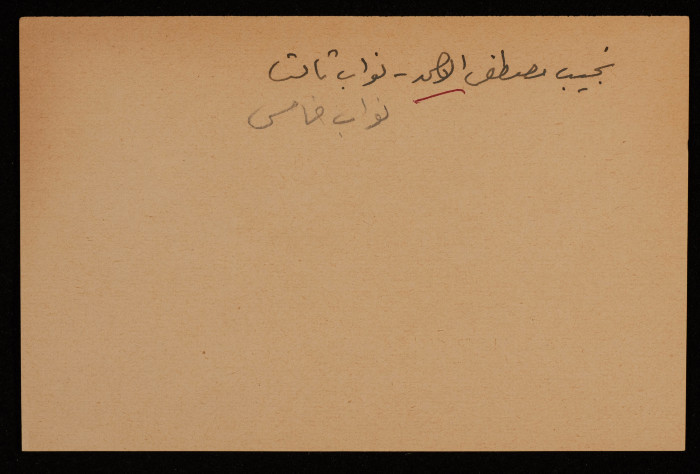 نجيب مصطفى الاحمد - نواب ثالث
نواب خامس